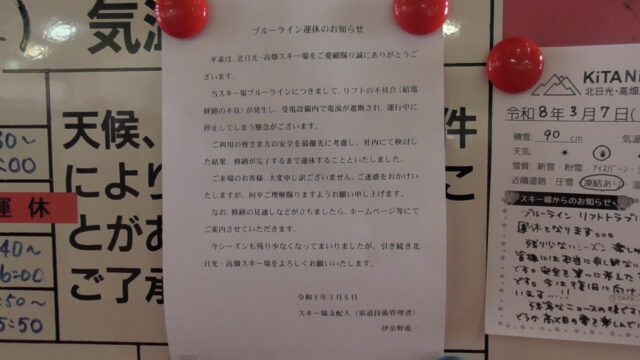 気温
0～
:00
運休
40～
6:00
:50～
5:50
天候、
により
とがあ
ご了承
件
こ
ブルーライン運休のお知らせ
平素は、北日光・高畑スキー場をご愛顧賜り誠にありがとうご
ざいます。
当スキー場ブルーラインにつきまして、リフトの不具合（給電
経路の不良）が発生し、受電設備内で電流が遮断され、運行中に
停止してしまう懸念がございます。
ご利用の皆さまの安全を最優先に考慮し、社内にて検討し
た結果、修繕が完了するまで運休することといたしました。
ご来場のお客様、大変申し訳ございません。ご迷惑をおかけい
たしますが、何卒ご理解賜りますようお願い申し上げます。
なお、修繕の見通しなどが立ちましたら、ホームページ等にて
ご案内させていただきます。
今シーズンも残り少なくなってまいりましたが、引き続き北
日光・高畑スキー場をよろしくお願いいたします。
令和8年3月6日
スキー場支配人（索道技術管理者）
KiTANi
北日光・高畑
令和8年3月7日(
積雪 90 cm 気温
天気
雪質 新雪 粉雪 アイスバーン
近隣道路 圧雪 凍結あり
スキー場からのお知らせ
ブルーライン リフトトラブル
運休となります。。。
残り少ないシーズン
皆様には本当に申し訳ない
です。安全を第一に考えた
です。今は復旧に向け
います…!!